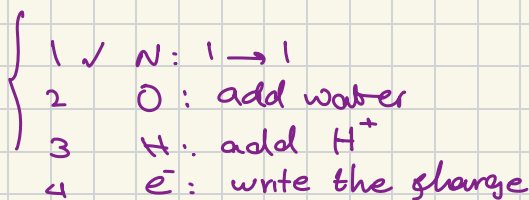 1 ✓ N: 1 → 1
2 O: add water
3 H: add H⁺
4 e⁻: write the charge